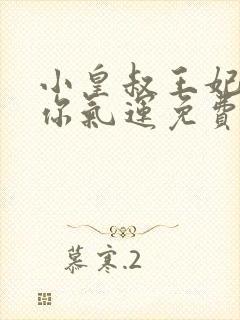 小皇叔王妃
你氣運免費
慕寒.2